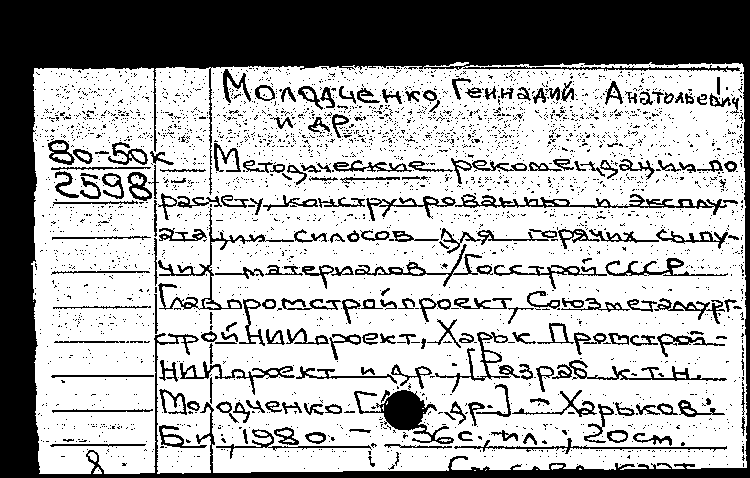 Молодченко, Геннадий Анатольевич
и др.
80-50к Методические рекомендации по
2598 расчету, конструированию и эксплу-
атации силосов для горячих сыпу-
чих материалов / Госстрой СССР.
Главпромстройпроект, Союзметаллург-
стройНИИпроект, Харьк. Промстрой-
НИИпроект и др.; [Разраб. к.т.н.
Молодченко и др.]. - Харьков:
Б.и., 1980. - 36с., ил.; 20см.
8. См. след. карт.